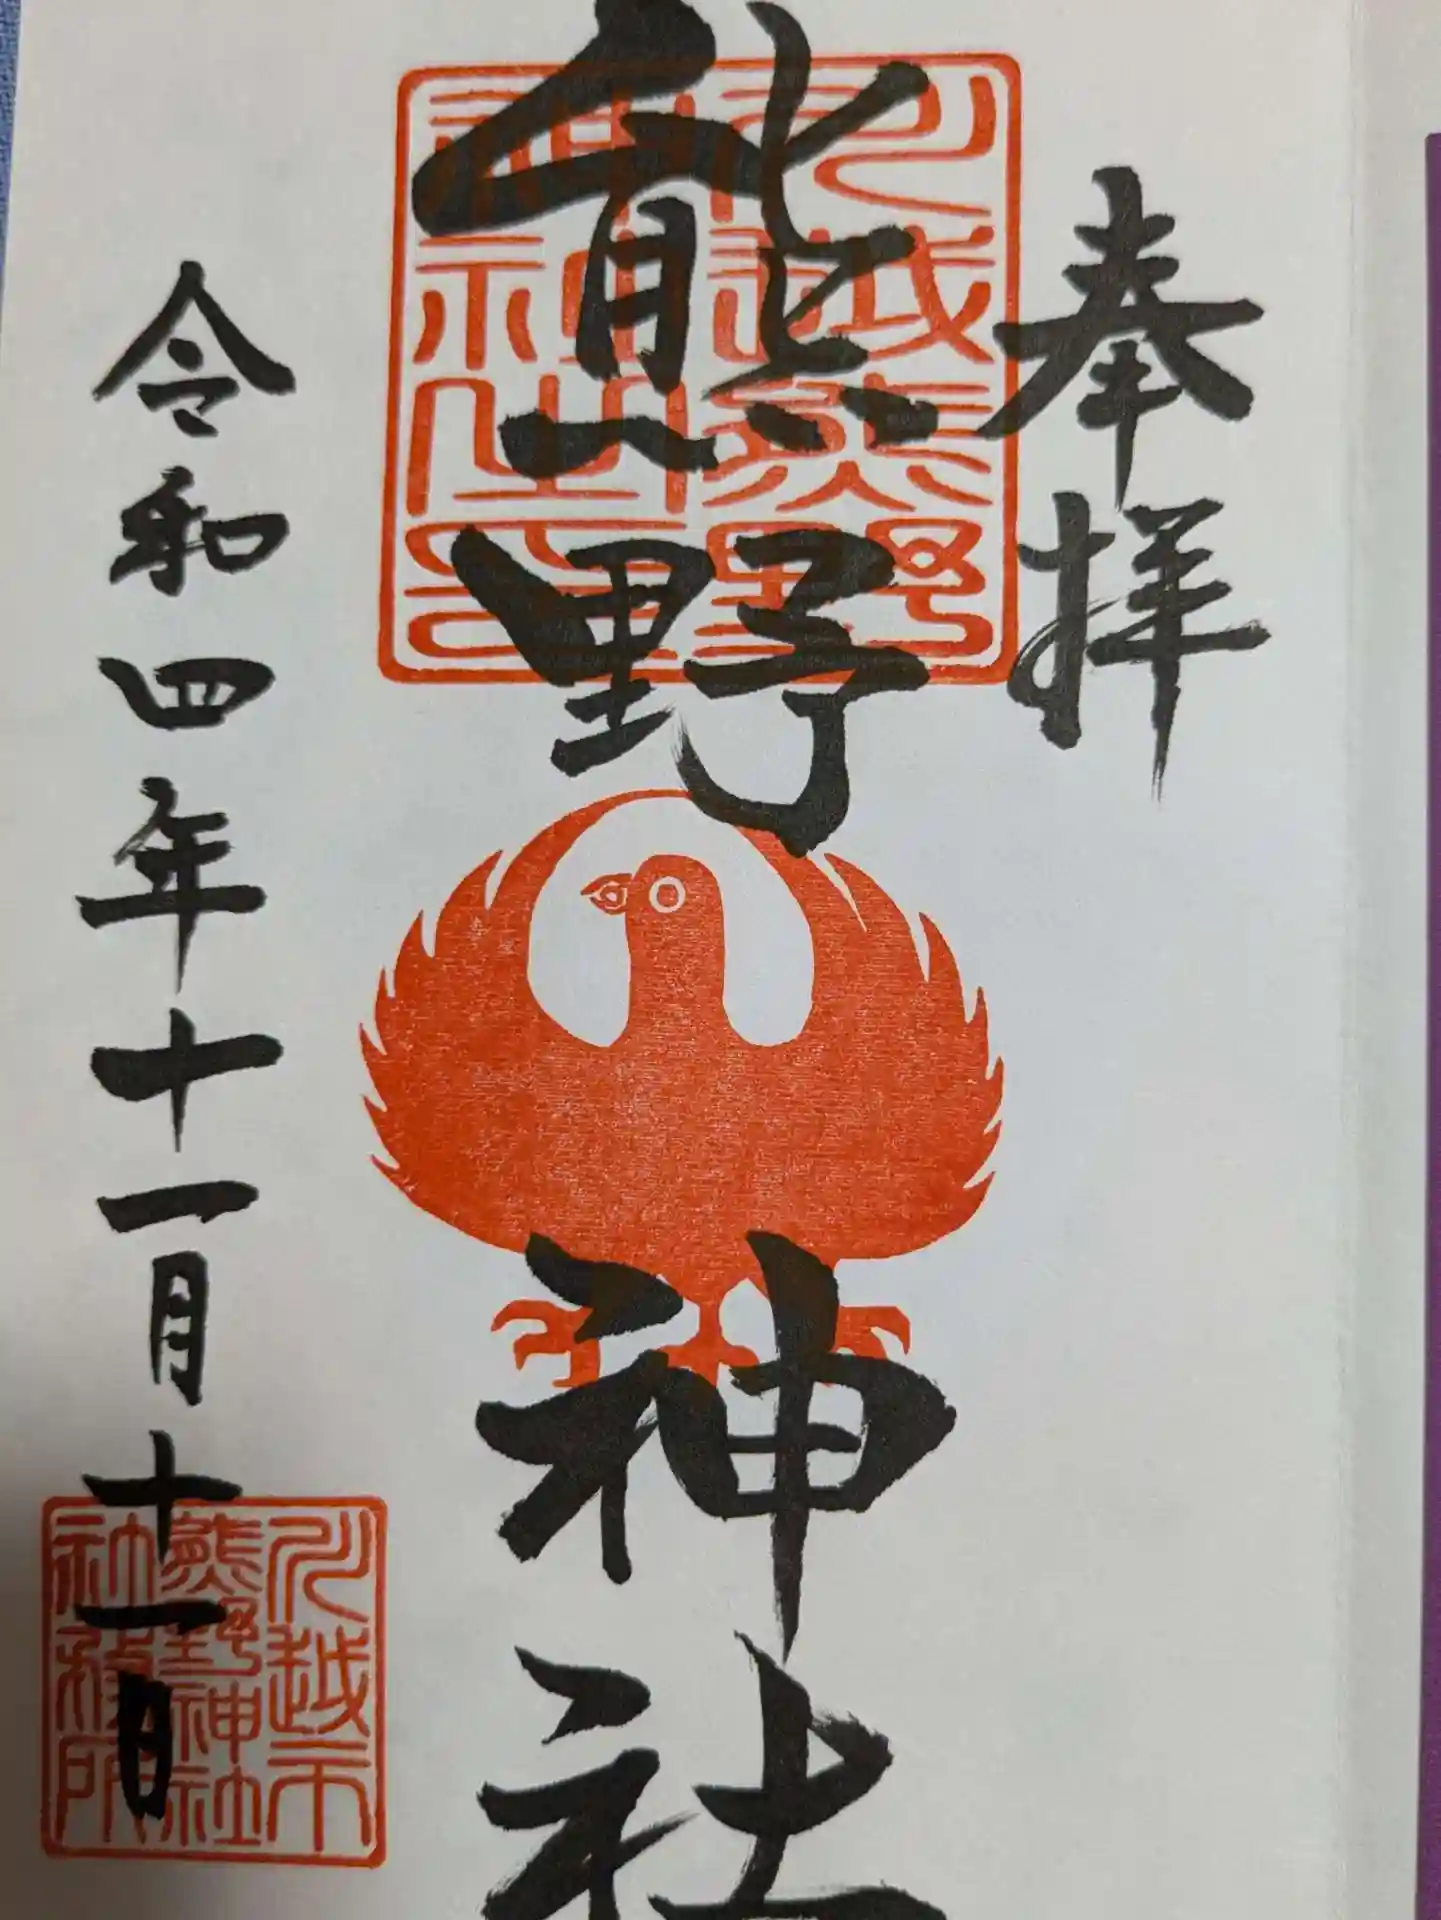 奉拝
熊野神社
令和四年十一月十一日
川越熊野
神社之印
川越市
熊野神社
社務所